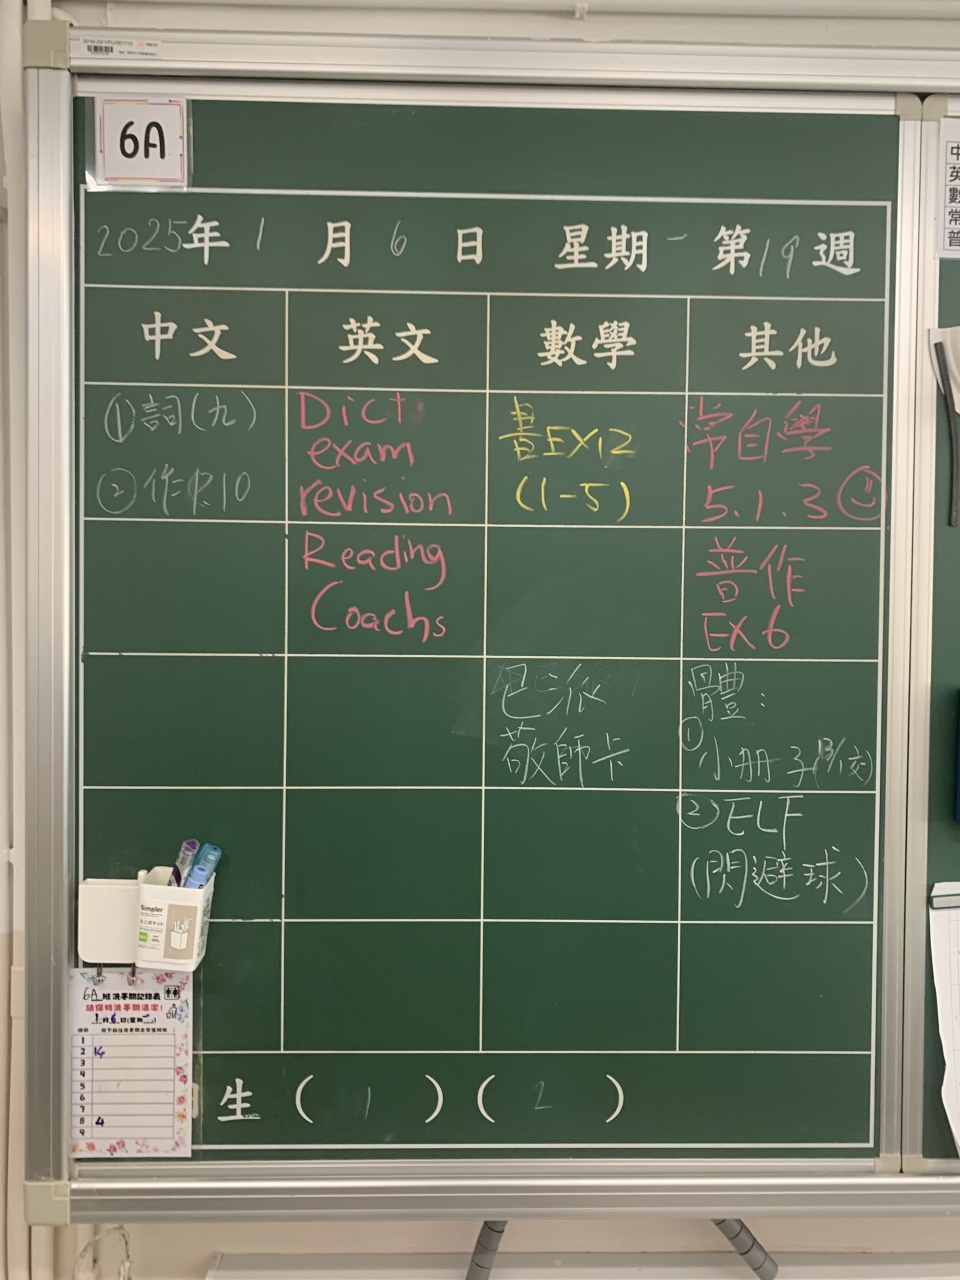 6A
2025年1月6日 星期一 第19週
中文 英文 數學 其他
①詞(九)
②作P.10
Dict
exam
revision
Reading
Coachs
書EX12
(1-5)
敬師卡
常自學
5.1.3
普作
EX6
體：
①小冊子(13/1交)
②ELF
(閃避球)
生 ( 1 ) ( 2 )
Simpler
6A班洗手間記錄表
請保持洗手間清潔!
1月6日(星期一)
1
2 14
3
4
5
6
7
8 4
9
中
英
數
常
普